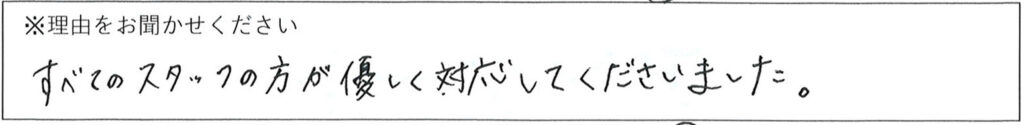 ※理由をお聞かせください
すべてのスタッフの方が優しく対応してくださいました。